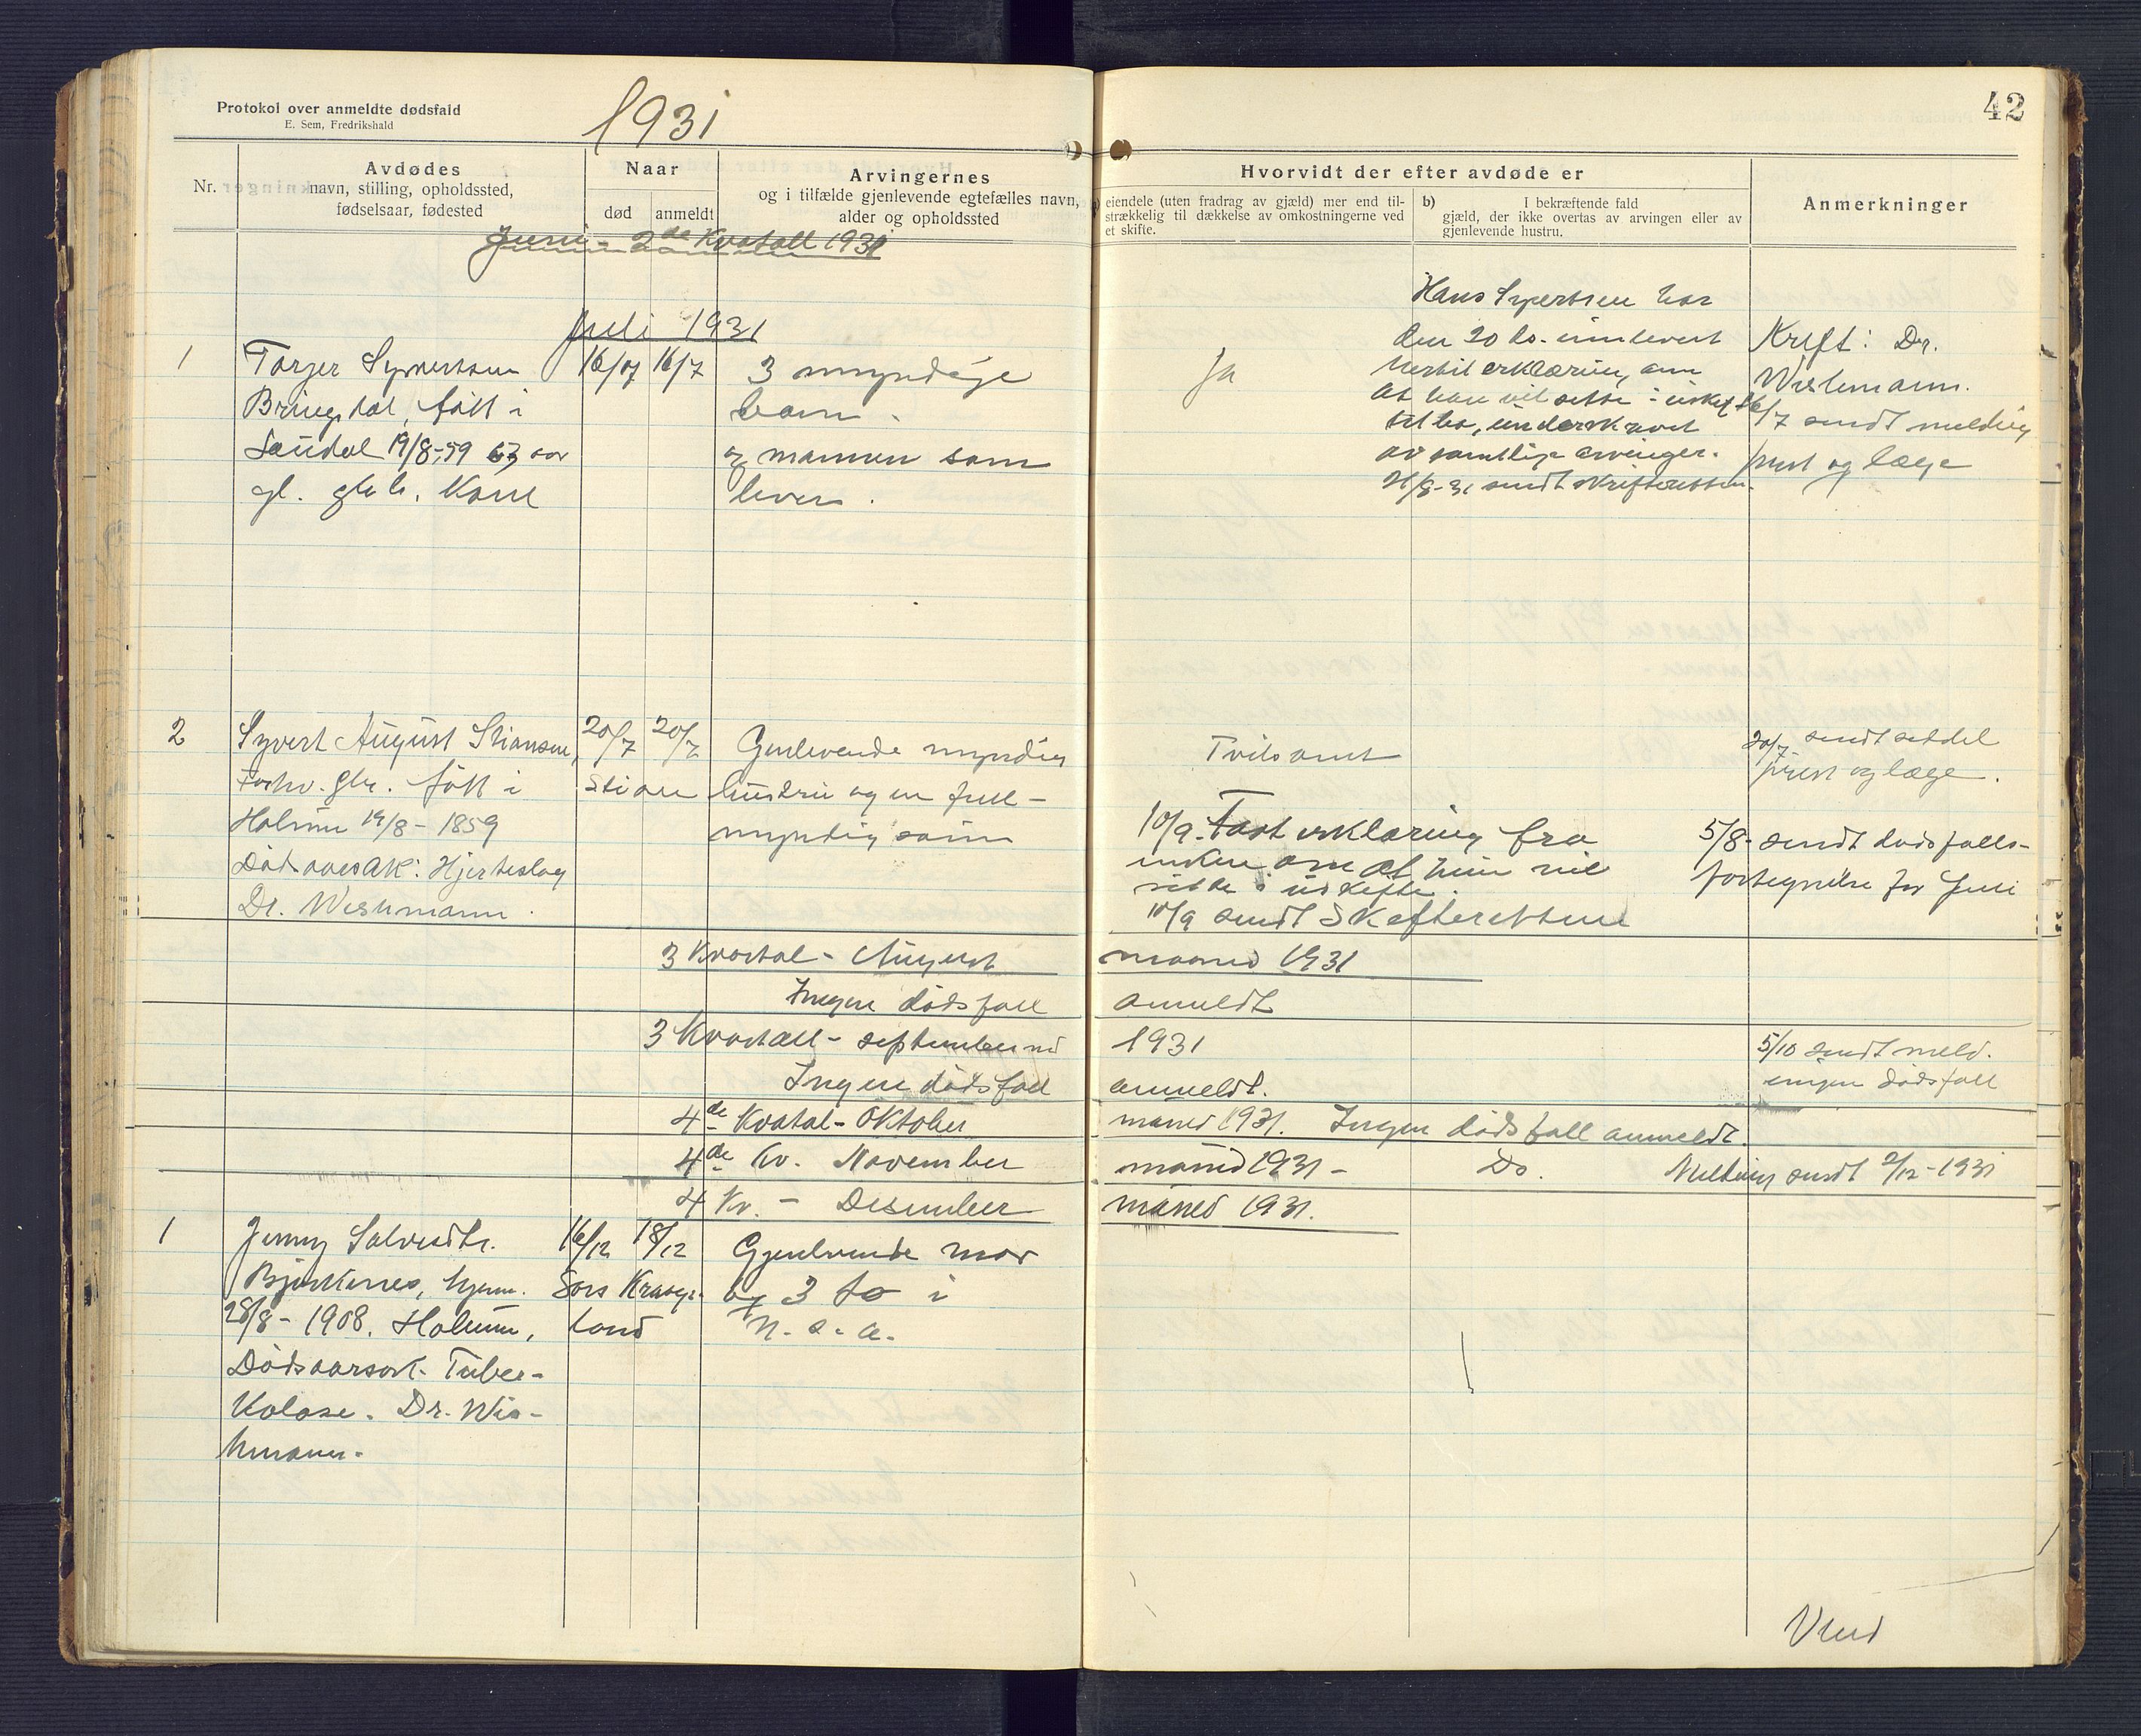 Protokol over anmeldte dødsfald
E. Sem, Fredrikshald
1931
42
Nr.
Avdødes
navn, stilling, opholdssted,
fødselsaar, fødested
Naar
død
anmeldt
Arvingernes
og i tilfælde gjenlevende egtefælles navn,
alder og opholdssted
Hvorvidt der efter avdøde er
eiendele (uten fradrag av gjæld) mer end til-
strækkelig til dækkelse av omkostningerne ved
et skifte.
b) I bekræftende fald
gjæld, der ikke overtas av arvingen eller av
gjenlevende hustru.
Anmerkninger
Juni - 2de Kvatall 1931
Juli 1931
1
Torger Syvertsen
Bringsdal, fött i
Laudal 19/8-59 63 aar
gl.
16/7
16/7
3 myndige
barn.
og mannen som
lever.
Ja
Hans Syvertsen har
den 20 ds. innlevert
hertil erklæring, om
at han vil sitte i uskif-
tet bo, underskrevet
av samtlige arvinger.
21/8-31 sendt skifteretten.
Kreft: Dr.
Wishmann.
16/7 sendt melding
prest og læge
2
Syvert August Stiansen,
Forhv. gbr. fött i
Holum 19/8-1859
Dödsaarsak: Hjerteslag
Dr. Wishmann.
20/7
20/7
Stiore
Gjenlevende myndig
hustru og en full-
myndig sönn
Tvilsomt
10/9. Faat erklæring fra
enken om at hun vil
sitte i uskifte.
10/9 sendt Skifteretten
20/7. sendt seddel
prest og læge.
5/8- sendt dødsfalls-
fortegnelse for Juli
3 Kvartal - August
maaned 1931
Ingen dödsfall
anmeldt
3 Kvartall - september md
1931
Ingen dödsfall
anmeldt.
5/10 sendt meld.
ingen dödsfall
4de Kvatal - Oktober
måned 1931. Ingen dödsfall anmeldt.
4de Kv. November
måned 1931 - Do. Melding sendt 2/12-1931
4 Kv. - Desember
måned 1931.
1
Jenny Salvesdtr.
Bjørkenes, hjem.
28/8-1908. Holum,
Dödsaarsak. Tuber-
kolose. Dr. Wis-
hmann.
16/12
18/12
Sörs Krage-
land
Gjenlevende mor
og 3 sö i
N. S. A.
Vend